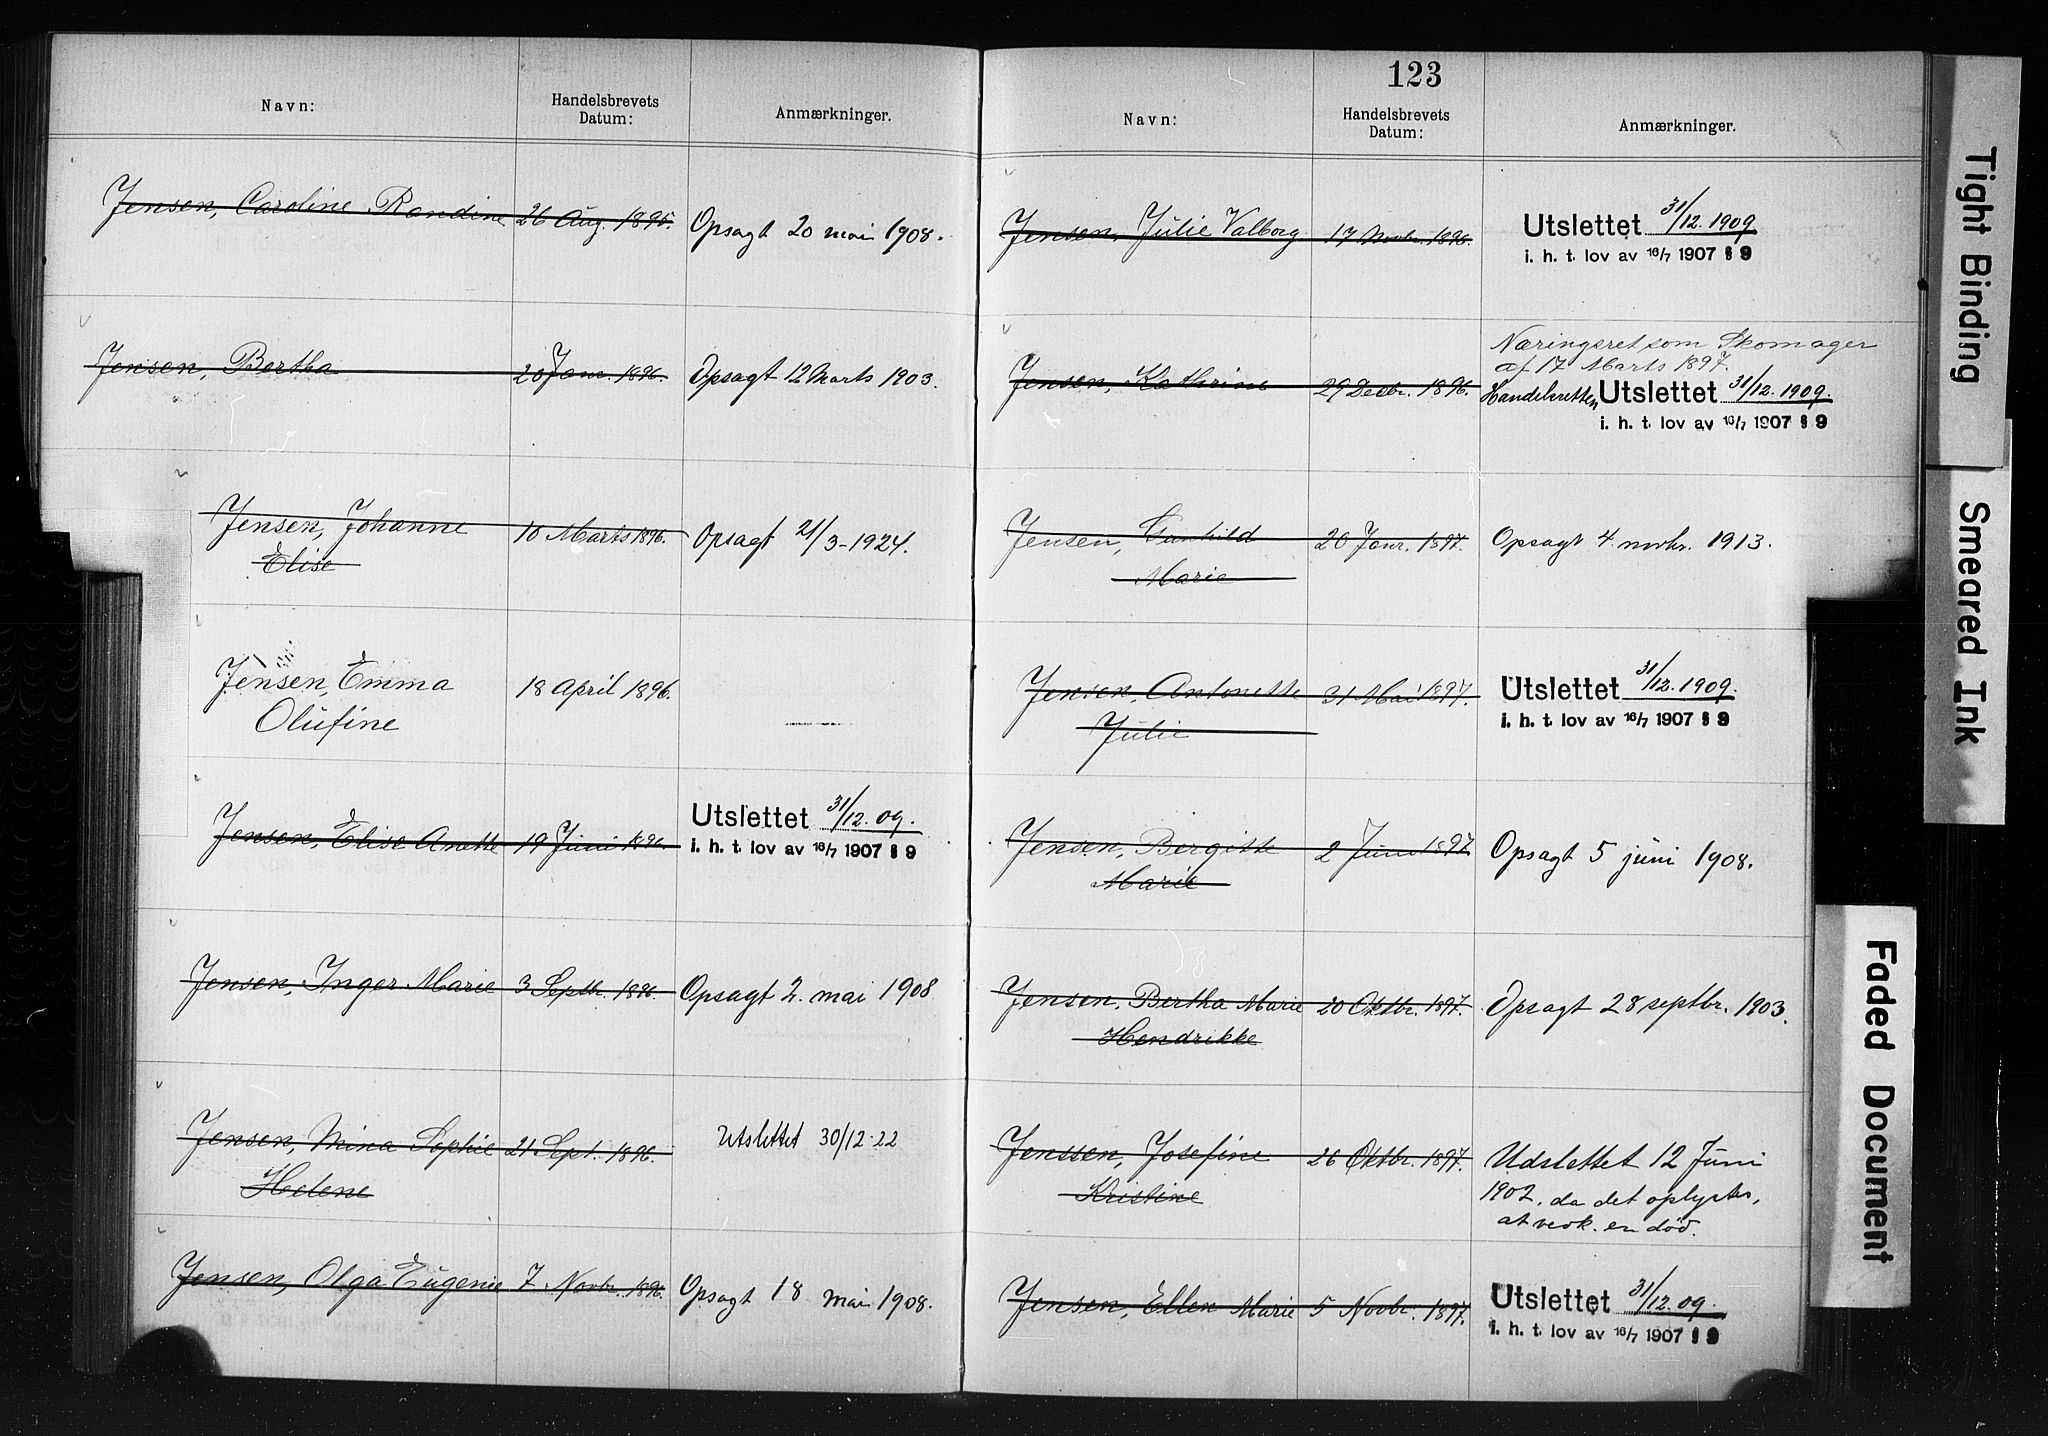 Navn:
Handelsbrevets
Datum:
Anmærkninger.
Jensen, Caroline Randine 26 Aug. 1895. Opsagt 20 mai 1908.
Jensen, Bertha 20 Janr. 1896. Opsagt 12 Marts 1903.
Jensen, Johanne 10 Marts 1896. Opsagt 21/3-1924.
Elise
Jensen, Emma 18 April 1896.
Olufine
Utslettet 31/12.09.
Jensen, Elise Anette 19 Juni 1896. i. h. t. lov av 16/7 1907 § 9
Jensen, Inger Marie 3 Septbr. 1896. Opsagt 2. mai 1908
Jensen, Mina Sophie 21 Sept. 1896. Utslettet 30/12-22
Helene
Jensen, Olga Eugenie 7. Novbr. 1896. Opsagt 18 mai 1908.
123
Navn:
Handelsbrevets
Datum:
Anmærkninger.
Jensen, Julie Valborg 17 Novbr. 1896. Utslettet 31/12.1909
i. h. t. lov av 16/7 1907 § 9
Næringsret som Skomager
af 17 Marts 1897.
Jensen, Kathrine 29 Decbr. 1896. Handelsretten Utslettet 31/12.1909.
i. h. t. lov av 16/7 1907 § 9
Jensen, Gunhild 20 Janr. 1897. Opsagt 4. novbr. 1913.
Marie
Jensen, Antonette 31 Mai 1897. Utslettet 31/12.1909.
Julie i. h. t. lov av 16/7 1907 § 9
Jensen, Bergitte 2 Juni 1897 Opsagt 5 juni 1908.
Marie
Jensen, Bertha Marie 20 Oktbr. 1897. Opsagt 28 septbr. 1903.
Hendrikke
Jenssen, Josefine 26 Oktbr. 1897. Udslettet 12 Juni
Kristine 1902, da det oplystes,
at vedk. er død.
Jensen, Ellen Marie 5 Novbr. 1897. Utslettet 31/12.09.
i. h. t. lov av 16/7 1907 § 9
Tight Binding
Smeared Ink
Faded Document